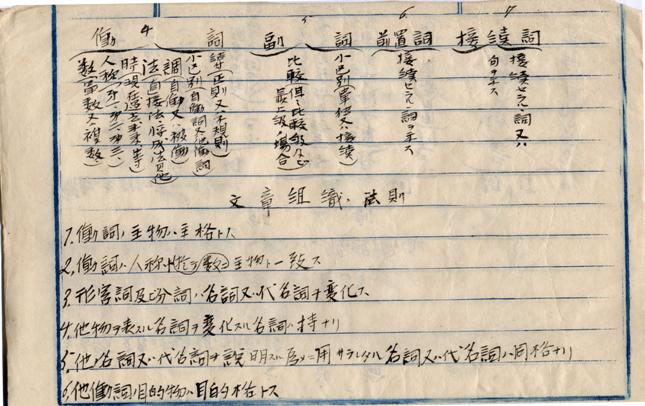 7
接続詞
接続セラレ、詞又ハ
句ヲ示ス
6
前置詞
接続セラレ、詞ヲ示ス
5
副詞
小区別(単純又ハ接続)
比較(但シ比較級及ビ
最上級ノ場合)
4
働詞
語(正則又ハ不規則)
小区別(自働詞又ハ他働詞)
調(自働又ハ被働)
法(直接法 成法其他)
時(現在過去未来等)
人称(第一、第二、第三)
数(単数又ハ複数)
文章組織ノ法則
1. 働詞ノ主物ハ主格トス
2. 働詞ハ人称ト数ヲ主物ト一致ス
3. 形容詞及ビ分詞ハ名詞又ハ代名詞ヲ変化ス
4. 他物ヲ表スル名詞ヲ変化スル名詞ハ持ナリ
5. 他ノ名詞又ハ代名詞ヲ説明スル為メニ用サラレタル名詞又ハ代名詞ハ同格ナリ
6. 他働詞ノ目的物ハ目的格トス